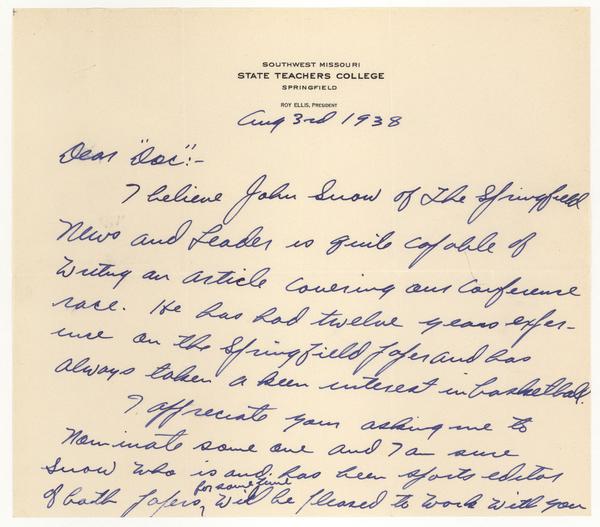 SOUTHWEST MISSOURI
STATE TEACHERS COLLEGE
SPRINGFIELD
ROY ELLIS, PRESIDENT
Aug 3rd 1938
Dear "Doc":-
I believe John Snow of The Springfield
News and Leader is quite capable of
writing an article covering our Conference
race. He has had twelve years exper-
ience on the Springfield paper and has
always taken a keen interest in basketball.
I appreciate your asking me to
nominate some one and I am sure
Snow who is and has been sports editor
for some time
of both papers, will be pleased to work with you